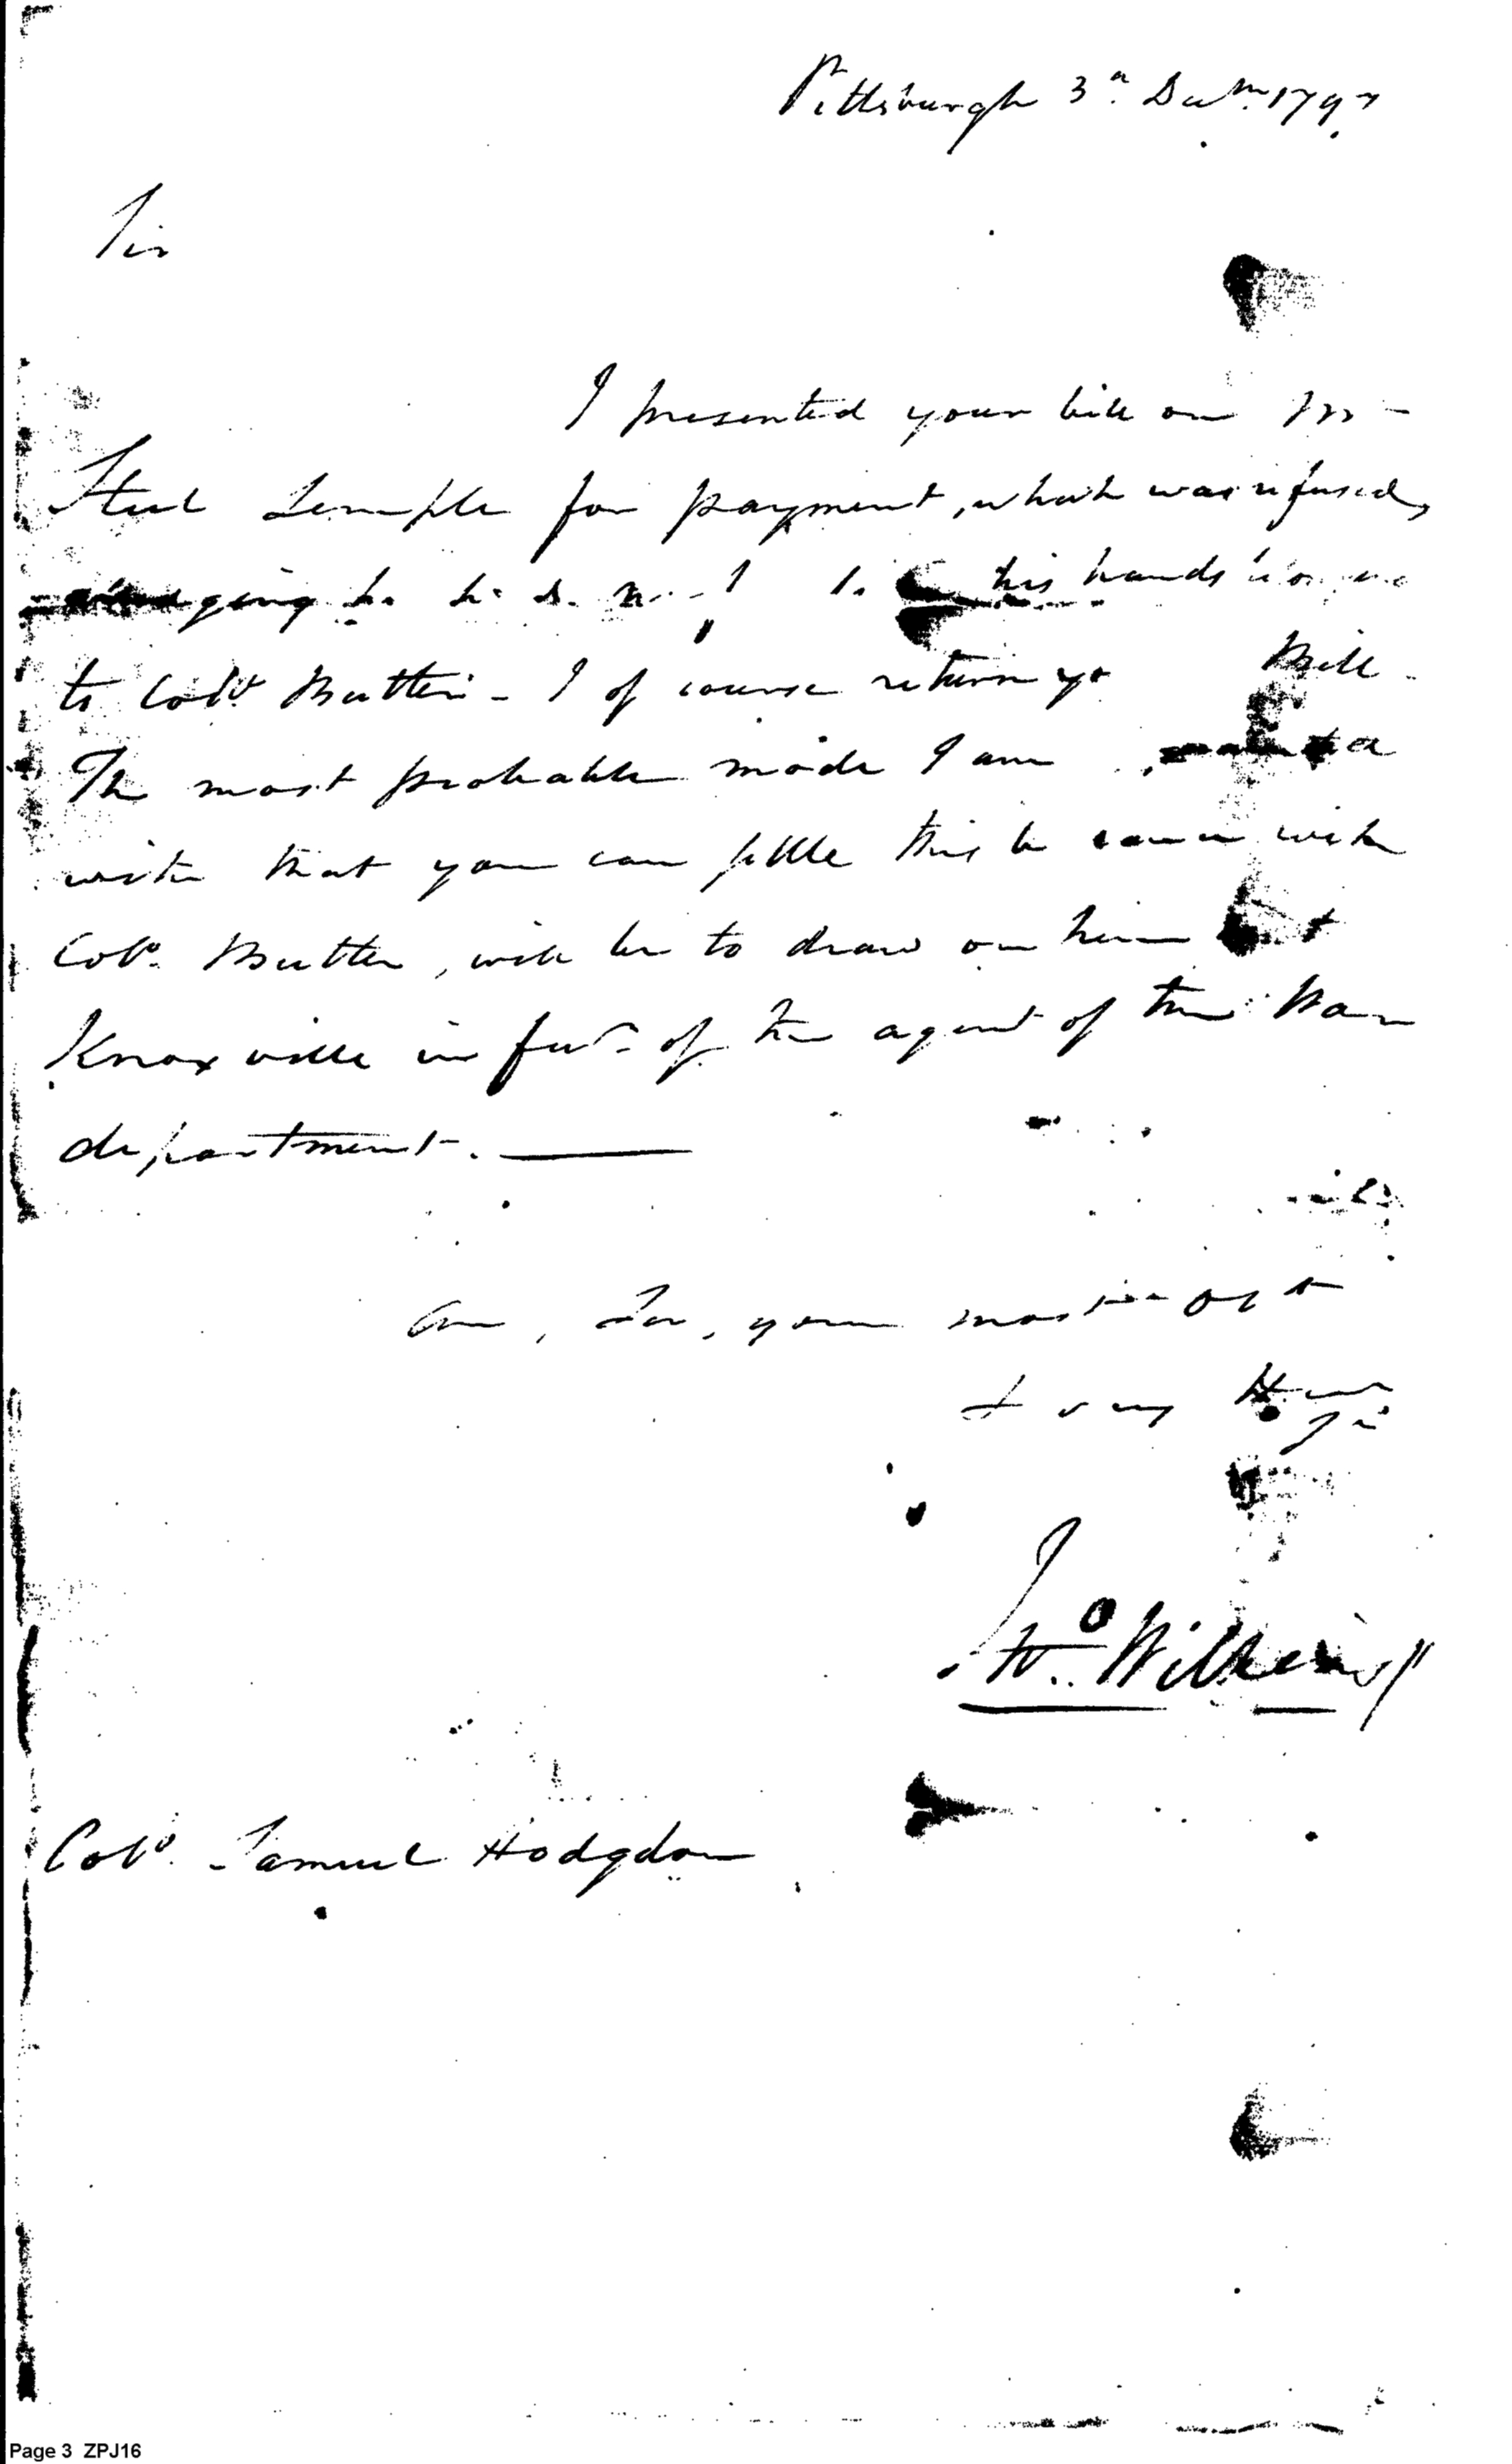 Pittsburgh 3d Decm 1797
Sir
I presented your bill on Mr
Steel Semple for payment, which was refused,
his hands
to Colo. Butler - I of course return yr Bill.
The most probable mode I am
with that you can settle this with
Colo. Butler, will be to draw on him at
Knoxville in favr. of the agent of the War
department.
am, Sir, your most obt
& very Hum
Jno. Wilkins Jr
Colo. Samuel Hodgdon
Page 3 ZPJ16